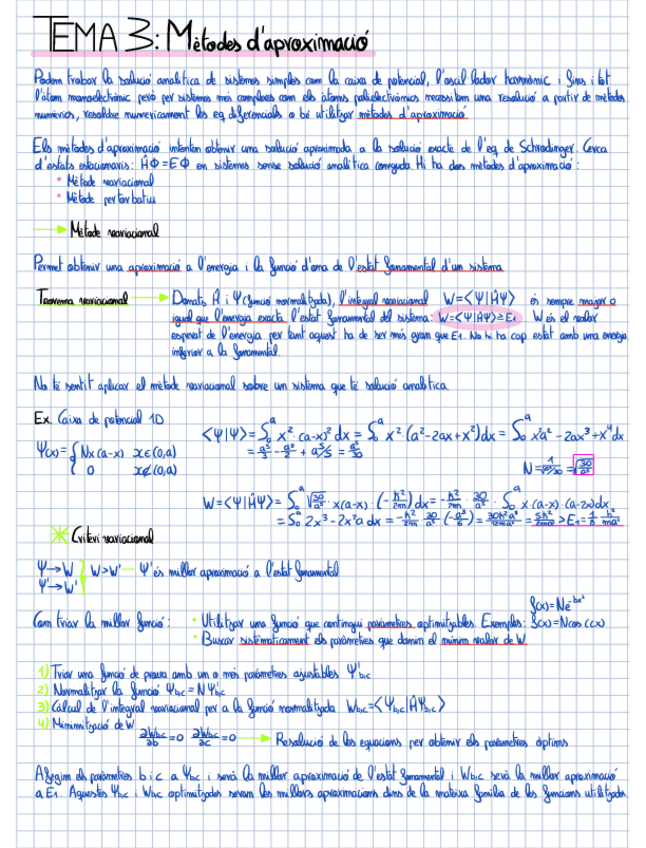 TEMA 3: Mètodes d'aproximació
Podem trobar la solució analítica de sistemes simples com la caixa de potencial, l'oscil·lador harmònic i fins i tot
l'àtom monoelectrònic però per sistemes més complexes com els àtoms polielectrònics necessitem una resolució a partir de mètodes
numèrics, resoldre numèricament les eq diferencials o bé utilitzar mètodes d'aproximació
Els mètodes d'aproximació intenten obtenir una solució aproximada a la solució exacte de l'eq de Schrödinger. Cerca
d'estats estacionaris: ĤΦ=EΦ en sistemes sense solució analítica coneguda. Hi ha dos mètodes d'aproximació:
• Mètode variacional
• Mètode pertorbatiu
→ Mètode variacional
Permet obtenir una aproximació a l'energia i la funció d'ona de l'estat fonamental d'un sistema
Teorema variacional → Donats Ĥ i Ψ (funció normalitzada), l'integral variacional W=<Ψ|ĤΨ> és sempre major o
igual que l'energia exacta l'estat fonamental del sistema: W=<Ψ|ĤΨ>≥E₁ W és el valor
esperat de l'energia per tant aquest ha de ser més gran que E₁. No hi ha cap estat amb una energia
inferior a la fonamental.
No té sentit aplicar el mètode variacional sobre un sistema que té solució analítica
Ex. Caixa de potencial 1D
Ψ(x)={ Nx(a-x) x∈(0,a)
0 x∉(0,a)
<Ψ|Ψ>=∫₀ᵃ x²·(a-x)² dx = ∫₀ᵃ x²·(a²-2ax+x²)dx = ∫₀ᵃ x²a²-2ax³+x⁴dx
= a⁵/3 - a⁵/2 + a⁵/5 = a⁵/30
N= 1/√(a⁵/30) = √(30/a⁵)
W=<Ψ|ĤΨ>=∫₀ᵃ √(30/a⁵)·x(a-x)·(-ħ²/2m)dx = -ħ²/2m · 30/a⁵ · ∫₀ᵃ x·(a-x)·(a-2x)dx
= ∫₀ᵃ 2x³-2x²a dx = -ħ²/2m 30/a⁵ (-a³/6) = 30ħ²a³/12ma⁵ = 5ħ²/2ma² > E₁= 1/8 h²/ma²
✳ Criteri variacional
Ψ→W
Ψ'→W'
} W>W' — Ψ' és millor aproximació a l'estat fonamental
Com triar la millor funció: • Utilitzar una funció que contingui paràmetres optimitzables. Exemples: f(x)=Ne^-bx²
f(x)=Ncos(cx)
• Buscar sistemàticament els paràmetres que donin el mínim valor de W
1) Triar una funció de prova amb un o més paràmetres ajustables Ψ'b,c
2) Normalitzar la funció Ψb,c = NΨ'b,c
3) Càlcul de l'integral variacional per a la funció normalitzada Wb,c=<Ψb,c|ĤΨb,c>
4) Minimització de W
∂Wb,c/∂b=0 ∂Wb,c/∂c=0 → Resolució de les equacions per obtenir els paràmetres òptims
Afegim els paràmetres b i c a Ψb,c i serà la millor aproximació de l'estat fonamental i Wb,c serà la millor aproximació
a E₁. Aquestes Ψb,c i Wb,c optimitzades seran les millors aproximacions dins de la mateixa família de les funcions utilitzada